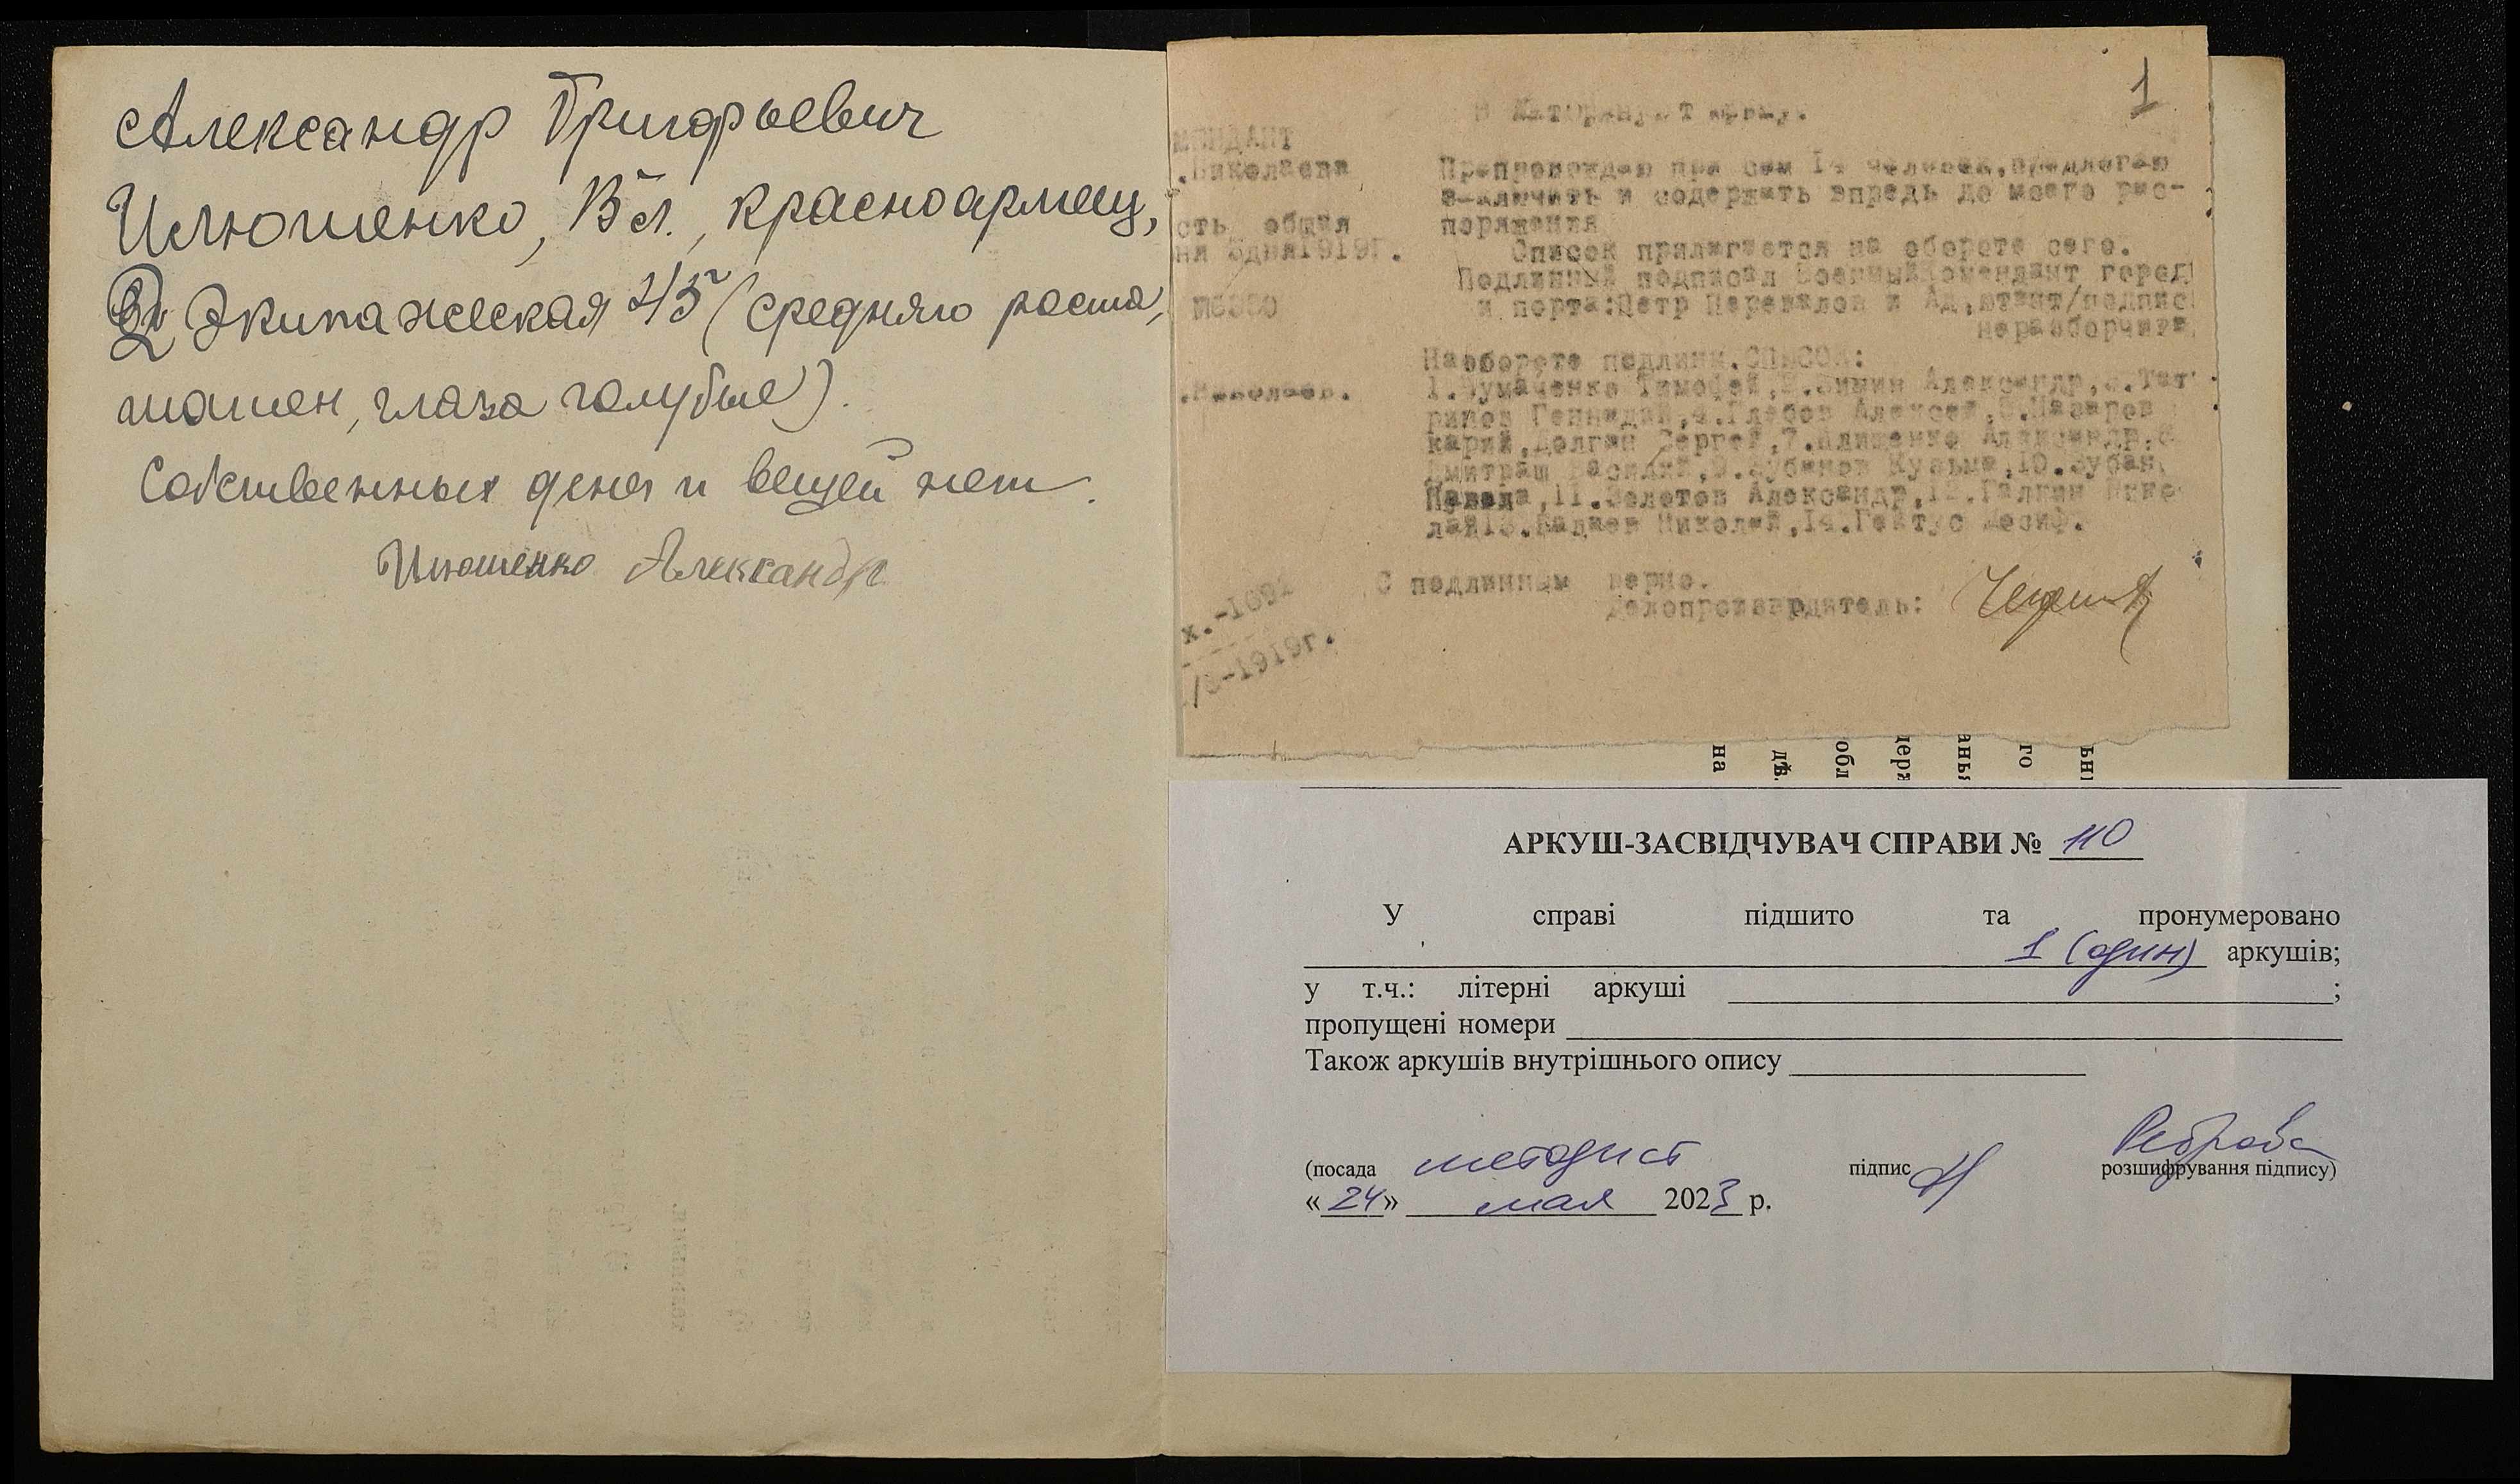 Александр Григорьевич
Илюшенко, 18 л., красноармеец,
2 Экипажеская 45 (среднего роста,
шатен, глаза голубые).
Собственных денег и вещей нет.
Илюшенко Александр
1
В Каторжную
МЕНДАНТ
.Николаева
сть общая
ня 3дня1919г.
Препровождаю при сем 14 человек,предлагаю
заключить и содержать впредь до моего рас-
поряжения
Список прилагается на обороте сего.
Подлинный подписал Военный Комендант город
и порта:Петр Перевалов и Ад,ютант/подпис
неразборчива
Наобороте подлинн.СПИСОК:
1.Чумаченко Тимофей,2.Зимин Александр,3.Тат
ринов Геннадий,4.Глебов Алексей,5.Назаров
карий,Долган Сергей,7.Илищенко Александр,8
Дмитраш Василий,9.Зубанов Кузьма,10.Зубан
Павел,11.Золотов Александр,12.Галкин Нико
лай13.Бадаев Николай,14.Гейтус Иосиф.
С подлинным верно.
Делопроизводитель:
х.-1092
/3-1919г.
на дѣ. обл держ анья го ьн
АРКУШ-ЗАСВІДЧУВАЧ СПРАВИ № 110
У справі підшито та пронумеровано
1 (один) аркушів;
у т.ч.: літерні аркуші ;
пропущені номери
Також аркушів внутрішнього опису
(посада методист підпис Реброва розшифрування підпису)
«24» мая 2023 р.